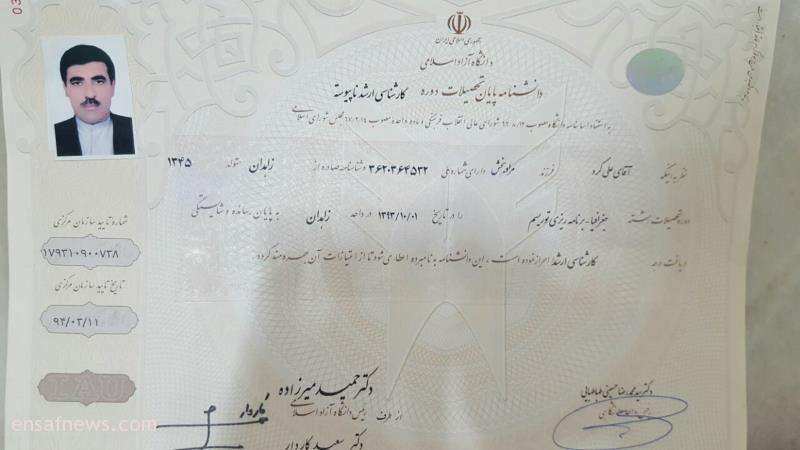 جمهوری اسلامی ایران
دانشگاه آزاد اسلامی
دانشنامه پایان تحصیلات دوره کارشناسی ارشد ناپیوسته
به استناد اساسنامه دانشگاه مصوب شورای عالی انقلاب فرهنگی و ماده واحده مصوب مجلس شورای اسلامی
نظر به اینکه آقای علی کرد فرزند مرادبخش دارای شماره ملی ۳۶۲۰۳۶۴۵۳۲ و شناسنامه صادره از زاهدان متولد ۱۳۴۵
دوره تحصیلات رشته جغرافیا-برنامه ریزی توریسم را در تاریخ ۱۳۹۳/۱۰/۰۱ در واحد زاهدان به پایان رسانده و شایستگی
دریافت درجه کارشناسی ارشد را احراز نموده است، این دانشنامه به نامبرده اعطا می شود تا از امتیازات آن بهره مند گردد.
شماره تایید سازمان مرکزی
۱۷۹۳۱۰۹۰۰۷۳۸
تاریخ تایید سازمان مرکزی
۹۴/۰۳/۱۱
دکتر سید محمد رضا حسینی طباطبایی
رئیس دانشگاه
دکتر حمید میرزاده
رئیس دانشگاه آزاد اسلامی
از طرف
دکتر سعید کاردار
ensafnews.com
03